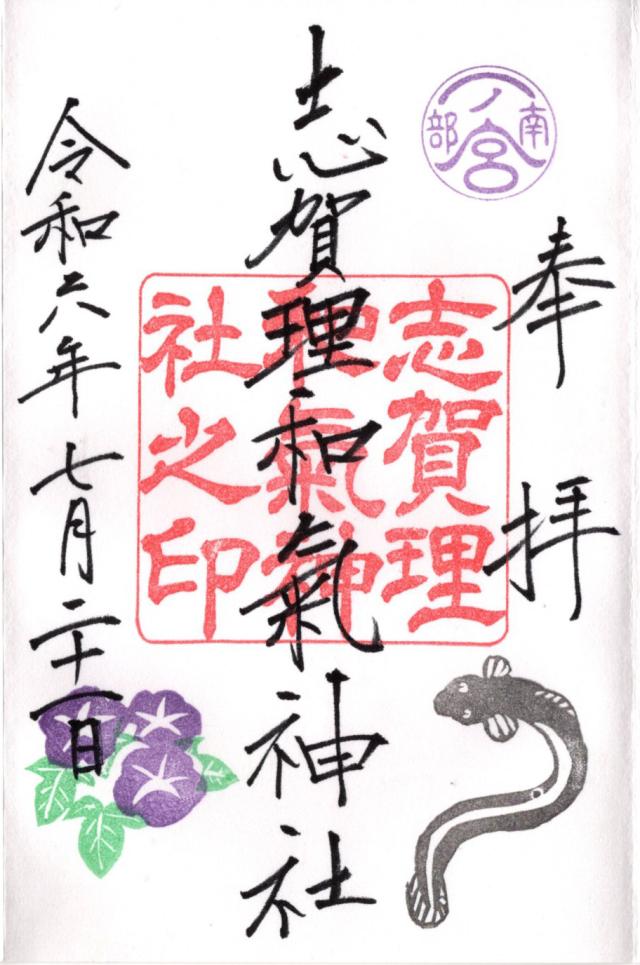 奉拝
南部
一ノ宮
志賀理和氣神社
志賀理
和氣神
社之印
令和六年七月二十一日